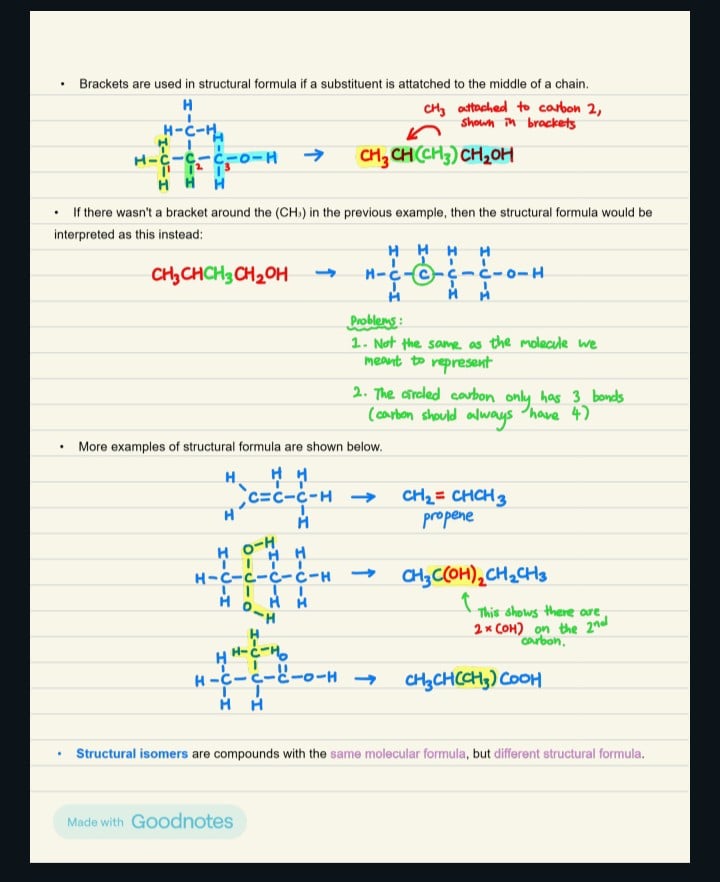 • Brackets are used in structural formula if a substituent is attatched to the middle of a chain.
CH₃ attached to carbon 2,
shown in brackets
H
H-C-H
H H
H-C-C-C-O-H → CH₃CH(CH₃)CH₂OH
1 2 3
H H H
• If there wasn't a bracket around the (CH₃) in the previous example, then the structural formula would be
interpreted as this instead:
H H H H
CH₃CHCH₃CH₂OH → H-C-C-C-C-O-H
H H H
Problems:
1. Not the same as the molecule we
meant to represent
2. The circled carbon only has 3 bonds
(carbon should always have 4)
• More examples of structural formula are shown below.
H H H
C=C-C-H → CH₂=CHCH₃
H H propene
O-H
H H H
H-C-C-C-C-H → CH₃C(OH)₂CH₂CH₃
H O H H
H
This shows there are
2x(OH) on the 2nd
carbon.
H
H H-C-H O
H-C-C-C-O-H → CH₃CH(CH₃)COOH
H H
• Structural isomers are compounds with the same molecular formula, but different structural formula.
Made with Goodnotes